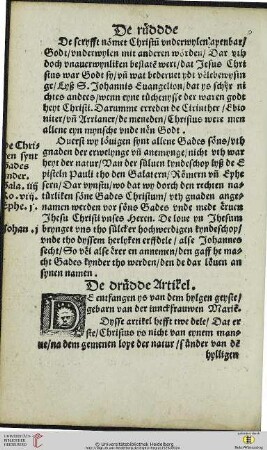 De rüddde
De scryfft nömet Christū vnderwylen apenbar/
Godt/vnderwylen mit anderen wörden/ Dar vth
doch vnauerwynliken bestatet wert/dat Jesus Chri
stus war Godt sy/vn wat beduret ydt vele bewysin
ge/Lyß S. Johannis Euangelion/dat ys schyr ni
chtes anders/wenn eyne tüchenysse der waren godt
heyt Christi. Darumme erreden de Cirinther/Ebio
niter/vn Arrianer/de meneden/Christus were men
allene eyn mynsche vnde nēn Godt.
Ouerst wy löuigen synt allene Gades söns/vth
gnaden der erwelynge vn annemynge/nicht vth war
heyt der natur/ Van der sülven kyndeschop lyß de E
pisteln Pauli tho den Galatern/Römern vn Ephe
sern/ Dar vynstu/wo dat wy dorch den rechten na-
türliken söne Gades Christum/vth gnaden ange-
namen werden vor söns Gades vnde mede Eruen
Jhesu Christi vnses Heren. De loue yn Jhesum
brynget vns tho sülcker hochwerdigen kyndeschop/
vnde tho dyssem herloken erffdele/ alse Johannes
secht/So vēl alse ērer en annemen/den gaff he ma-
cht Gades kynder tho werden/den de dar löuen an
synen namen.
De Chri-
sten synt
Gades
kinder.
Gala. iiij
Ro. viij.
Ephe. j.
Johan. j
De drüdde Artikel.
De entfangen ys van dem hylgen geyste/
gebarn van der junckfrauwen Marië.
Dysse artikel hefft twe dele/ Dat er-
ste/Christus ys nicht van eynem man-
ne/na dem gemenen lope der natur/sünder van dē
hylligen
UNIVERSITÄTS-
BIBLIOTHEK
HEIDELBERG
© Universitätsbibliothek Heidelberg